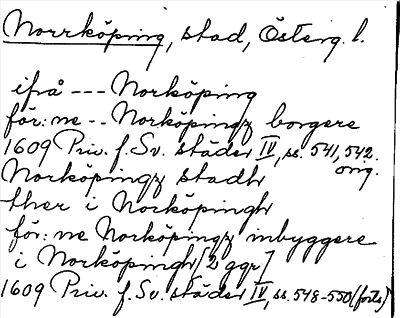 Norrköping, stad, Österg. l.
ifrå --- Norköping
för:ne -- Norköpingz borgere
1609 Priv. f. Sv. städer IV, ss. 541, 542.
orig.
Norköpingz stadh
ther i Norköpingh
för:ne Norköpingz inbyggere
i Norköpingh [2 ggr]
1609 Priv. f. Sv. städer IV, ss. 548-550 (forts)